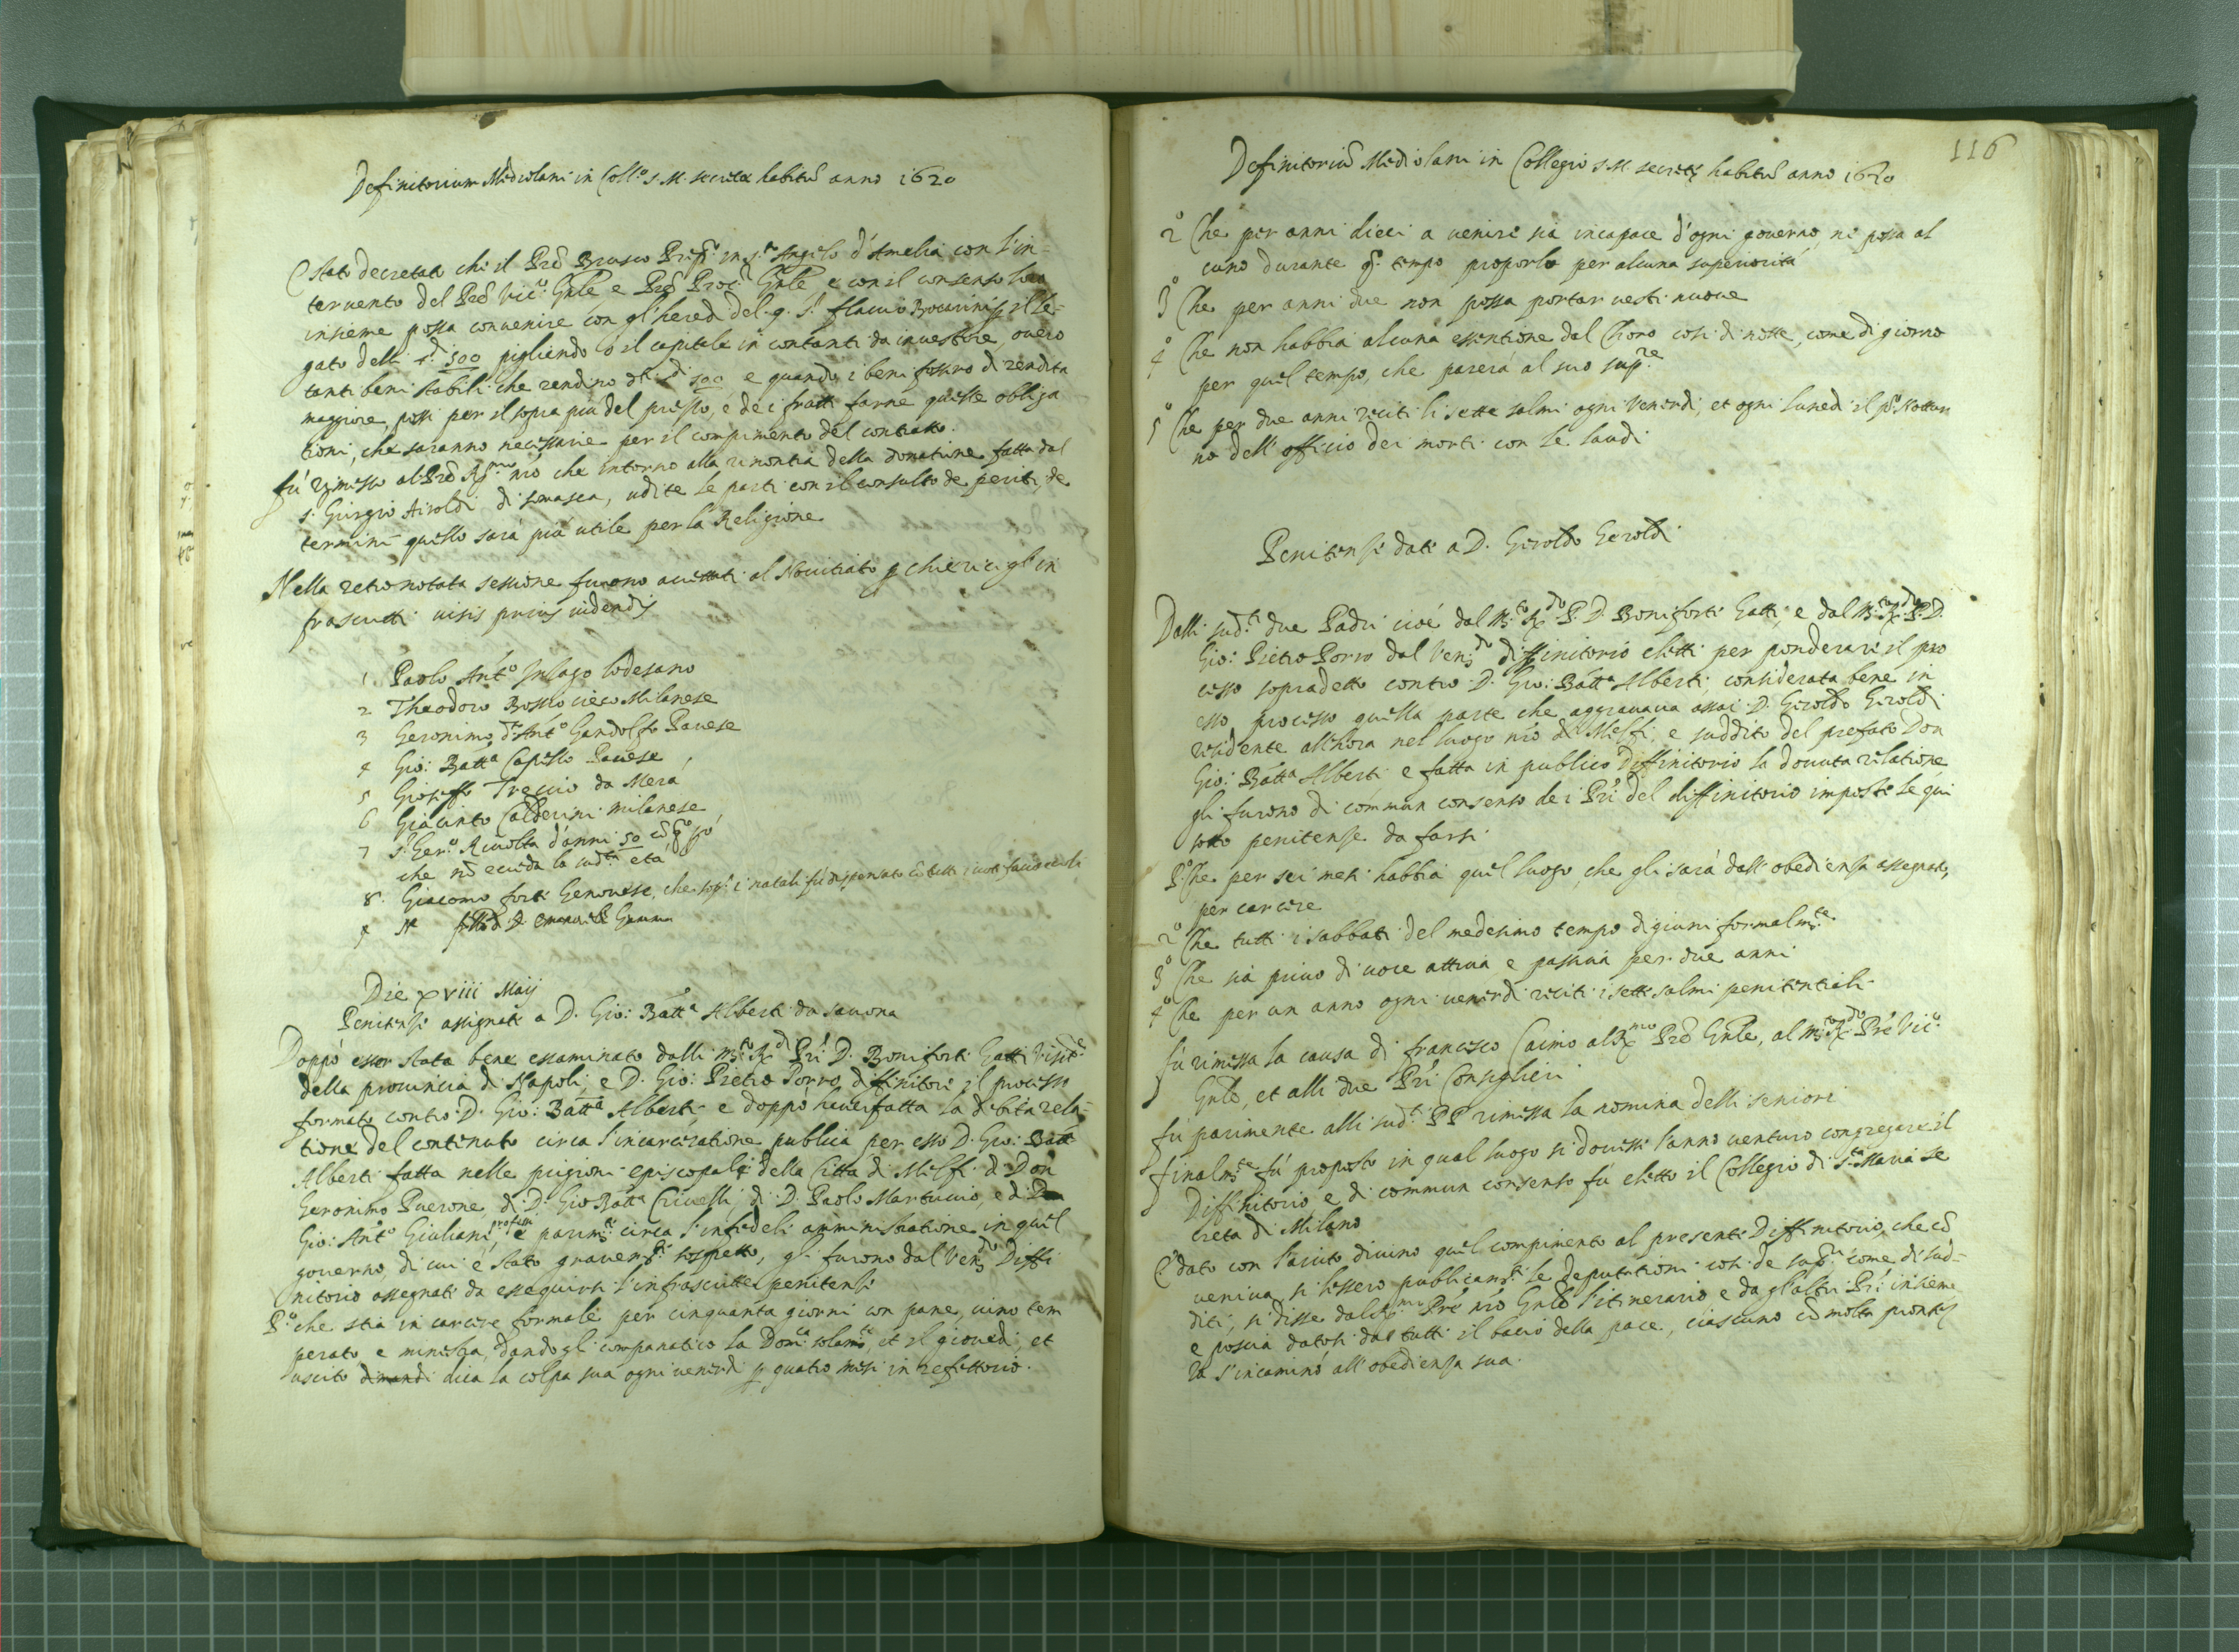 Definitorium Mediolani in Coll.o S. M. secretæ habitũ anno 1620
È stato decretato che il Prẽ Brusco Prep.to in S.to Angelo d'Amelia con l'in=
teruento del Prẽ Vic.o Gñle e Prẽ Proc.r Gñle e con il consenso loro
insieme possa conuenire con gl'hered del q. S.r Flauio il le=
gato delli 500 pigliendo o il capitale in contanti da inuestire, ouero
tanti beni stabili che rendino 500 e quando i beni fossero di rendita
maggiore possi per il sopra più del prezzo, e de i frutti farne quelle obliga
tioni, che saranno necessarie per il compimento del contratto.
Fù rimesso al Prẽ R.mo nro che intorno alla renontia della donatione fatta dal
S. Giorgio Airoldi di somasca, udite le parti con il consulto de periti, de
termini quello sarà più utile per la Religione
Nella retronotata sessione furono accettati al Nouitiato p chierici gl'in
frascritti uisis prius uidendis
1 Paolo Ant.o lodesano
2 Theodoro Bosso Milanese
3 Geronimo, d.to Ant.o Gandolfo Pauese
4 Gio: Batta Capello Pauese
5 Gioseffo Treccio da Mera
6 Giacinto Calderini milanese
7 S. Ger.o Riuolta d'anni 50
che nõ ecceda la sud.ta età
8. Giacomo forti Genouese, che sop.a i natali fù dispensato cõ tutti i uoti
9 N D. Emanuele
Die xviii Maij
Penitenze assignate a D. Gio: Batta Alberti da Sauona
Doppò esser stata bene essaminato dalli m.to R.di Pri D. Boniforte Gatti Visit.e
della prouincia di Napoli, e D. Gio: Pietro Porro diffinitori il processo
formato contro D. Gio: Batta Alberti e doppò hauer fatta la debita rela=
tione del contenuto circa l'incarceratione publica per esso D. Gio: Batta
Alberti fatta nelle prigioni episcopali della Città di Melfi di Don
Geronimo Puerone, di D. Gio Batta Criuelli, di D. Paolo Martucio, e di
Gio: Ant.o Giuliani, professi e parim.te circa l'infedele amministratione in quel
gouerno, di cui è stato grauem.te sospetto, gli furono dal Ven.do Diffi
nitorio assegnate da esseguirsi l'infrascritte penitenze
P.o che stia in carcere formale per cinquanta giorni con pane, uino tem
perato e minestra, dandogli companatico la Dom.ca solam.te, et il giouedì, et
uscito dimandi dica la colpa sua ogni uenerdì p quatro mesi in refettorio.
116
Definitoriũ Mediolani in Collegio S. M. secretæ habitũ anno 1620
2o Che per anni dieci a uenire sia incapace d'ogni gouerno, ne possa al
cuno durante q.o tempo proporlo per alcuna superiorità
3o Che per anni due non possa portar uesti nuoue
4o Che non habbia alcuna essentione dal Choro così di notte, come di giorno
per quel tempo, che parerà al suo sup.re
5o Che per due anni reciti li sette salmi ogni Venerdì, et ogni lunedì il p.o Nottur
no dell'officio dei morti con le laudi
Penitenze date a D. Giroldo Giroldi
Dalli sud.ti due Padri cioè dal M.to R.do P. D. Boniforte Gatti, e dal M.to R.do P. D.
Gio: Pietro Porro dal Ven.do diffinitorio eletti per ponderare il pro
cesso sopradetto contro D. Gio: Batta Alberti, considerata bene in
esso processo quella parte che aggrauaua assai D. Giroldo Giroldi
residente all'hora nel luogo nro di Melfi, e suddito del prefato Don
Gio: Batta Alberti e fatta in publico Diffinitorio la douuta relatione
gli furono di commun consenso de i Pri del diffinitorio imposte le qui
sotto penitenze da farsi
P.o Che per sei mesi habbia quel luogo, che gli sarà dall'obedienza assegnato,
per carcere
2o Che tutti i sabbati del medesimo tempo digiuni formalm.te
3o Che sia priuo di uoce attiua e passiua per due anni
4o Che per un anno ogni uenerdì reciti i sette salmi penitentiali
Fù rimessa la causa di Francesco Caimo al R.mo Prẽ Gñle, al m.to R.do Prẽ Vic.o
Gñle, et alli due Pri Consiglieri
Fù parimente alli sud.ti PP rimessa la nomina delli seniori
Finalm.te fù proposto in qual luogo si douesse l'anno uenturo congregare il
Diffinitorio, e di commun consenso fù eletto il Collegio di S.ta Maria se
creta di Milano
E dato con l'aiuto diuino quel compimento al presente Diffinitorio, che cõ
ueniua, si lessero publicam.te le deputationi così de sup.ri come di sud=
diti, si disse dal R.mo Prẽ nro Gñle l'itinerario, e da gl'altri Pri insieme
e poscia datosi da tutti il bacio della pace, ciascuno cõ molta prontez
za s'incaminò all'obedienza sua.